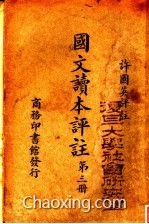 許國英評註
國文讀本評註 第三冊
商務印書館發行
www.997788.com